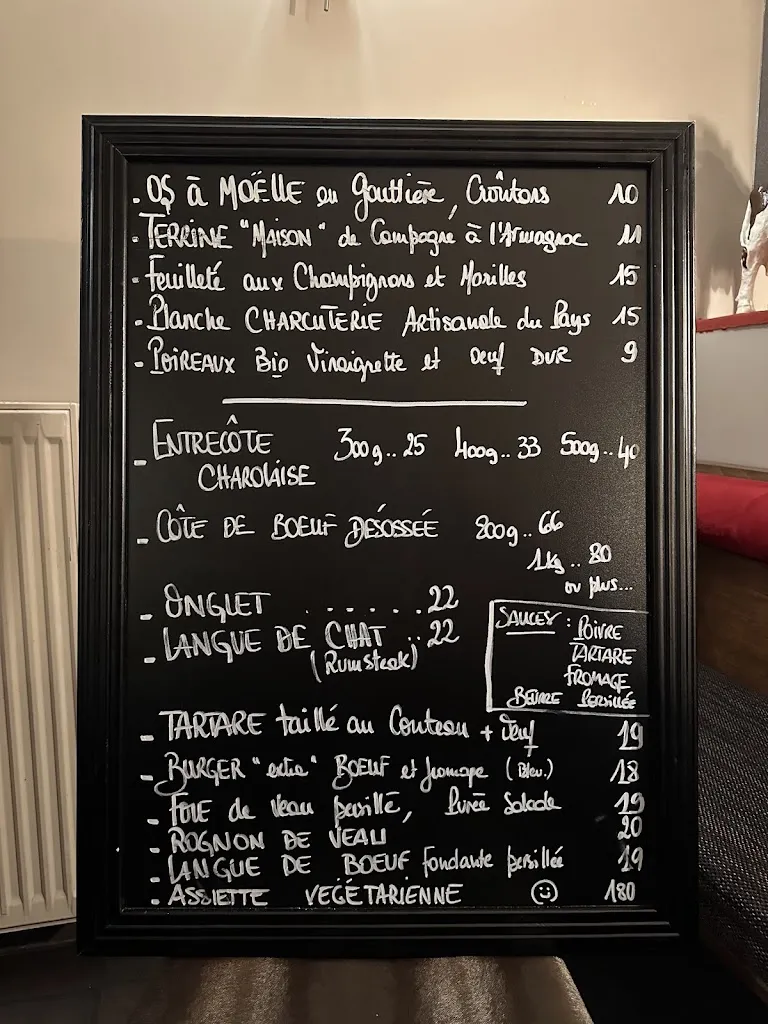 . OS à MOËLLE en Gouttière, Croûtons 10
. TERRINE "MAISON" de Campagne à l'Armagnac 11
. Feuilleté aux Champignons et Morilles 15
. Planche CHARCUTERIE Artisanale du Pays 15
- POIREAUX Bio Vinaigrette et Oeuf DUR 9
- ENTRECÔTE 300g.. 25 400g.. 33 500g.. 40
CHAROLAISE
- CÔTE DE BOEUF DÉSOSSÉE 800g.. 66
1kg .. 80
ou plus...
- ONGLET ...... 22
- LANGUE DE CHAT .. 22
(Rumsteak)
SAUCES : POIVRE
TARTARE
FROMAGE
BEURRE PERSILLÉE
- TARTARE taillé au Couteau + Oeuf 19
- BURGER "extra" BOEUF et fromage (Bleu.) 18
- FOIE de Veau persillé, Purée Salade 19
- ROGNON DE VEAU 20
- LANGUE DE BOEUF fondante persillée 19
- ASSIETTE VÉGÉTARIENNE ☺ 180